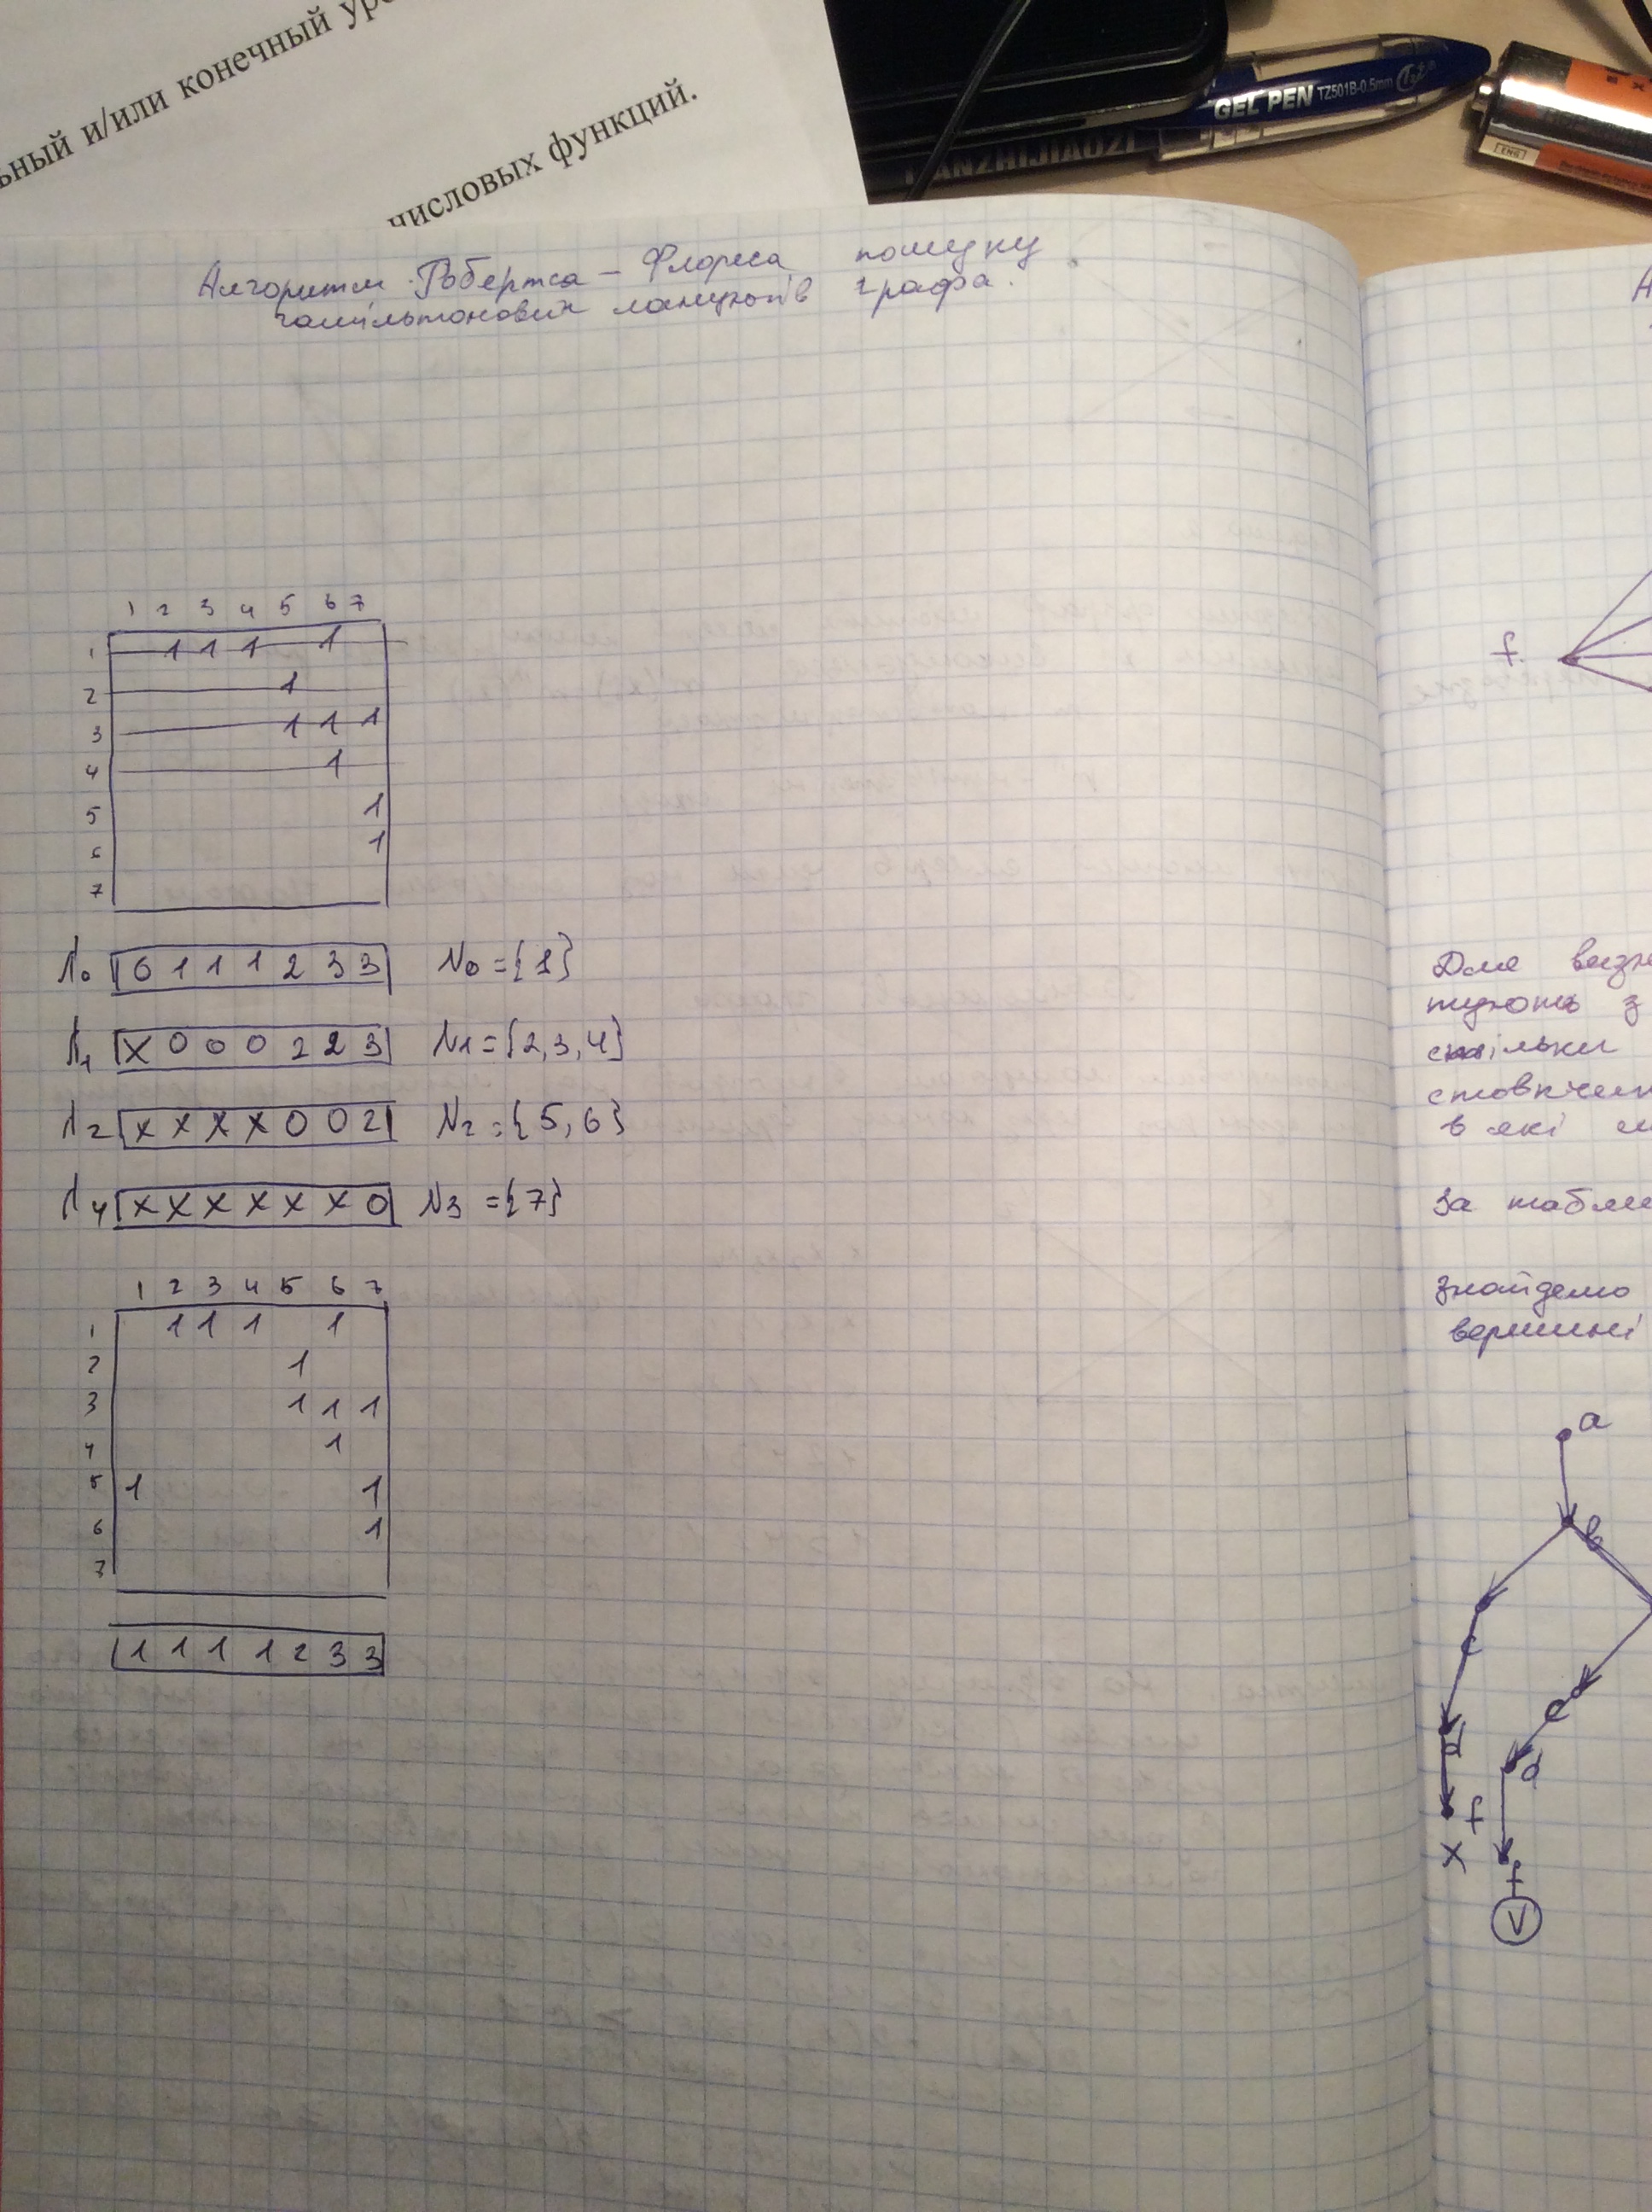 ьный и/или конечный уро
числовых функций.
GEL PEN TZ501B-0.5mm
HANZHIJIAOZI
ENG
Алгоритм Робертса – Флореса пошуку
гамільтонових ланцюгів графа.
1 2 3 4 5 6 7
1 1 1 1 1
2 1
3 1 1 1
4 1
5 1
6 1
7
Λ0 0 1 1 1 2 3 3 N0 = {1}
Λ1 X 0 0 0 2 2 3 N1 = {2, 3, 4}
Λ2 X X X X 0 0 2 N2 = {5, 6}
Λ4 X X X X X X 0 N3 = {7}
1 2 3 4 5 6 7
1 1 1 1 1
2 1
3 1 1 1
4 1
5 1 1
6 1
7
1 1 1 1 2 3 3
А
f.
Для визн
тують з
скільки
стовпчик
в які
За табли
знайдемо
вершині
a
b
c
e
d
d
f
X
f
V